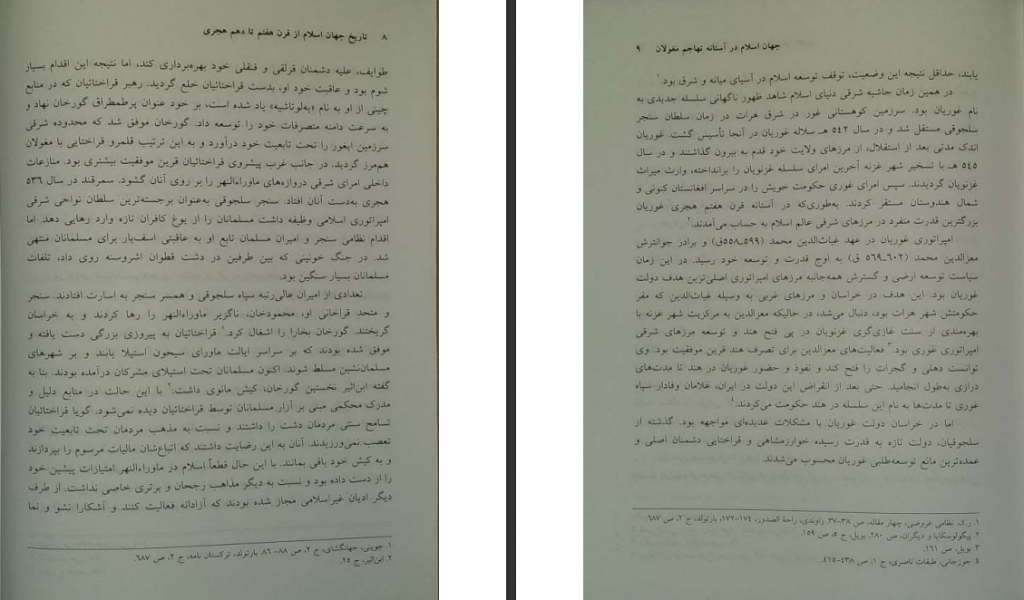 ۸ تاریخ جهان اسلام از قرن هفتم تا دهم هجری
طوایف، علیه دشمنان قرلقی و قنقلی خود بهره‌برداری کند، اما نتیجه این اقدام بسیار
شوم بود و عاقبت خود او، بدست قراختائیان خلع گردید. رهبر قراختائیان که در منابع
چینی از او به نام «یه‌لوتاشیه» یاد شده است، بر خود عنوان پرطمطراق گورخان نهاد و
به سرعت دامنه متصرفات خود را توسعه داد. گورخان موفق شد که محدوده شرقی
سرزمین ایغور را تحت تابعیت خود درآورد و به این ترتیب قلمرو قراختایی با مغولان
هم‌مرز گردید. در جانب غرب پیشروی قراختائیان قرین موفقیت بیشتری بود. منازعات
داخلی امرای شرقی دروازه‌های ماوراءالنهر را بر روی آنان گشود. سمرقند در سال ۵۳۶
هجری به‌دست آنان افتاد. سنجر سلجوقی به‌عنوان برجسته‌ترین سلطان نواحی شرقی
امپراتوری اسلامی وظیفه داشت مسلمانان را از یوغ کافران تازه وارد رهایی دهد. اما
اقدام نظامی سنجر و امیران مسلمان تابع او به عاقبتی اسف‌بار برای مسلمانان منتهی
شد. در جنگ خونینی که بین طرفین در دشت قطوان اشروسنه روی داد، تلفات
مسلمانان بسیار سنگین بود.
تعدادی از امیران عالی‌رتبه سپاه سلجوقی و همسر سنجر به اسارت افتادند. سنجر
و متحد قراخانی او، محمودخان، ناگزیر ماوراءالنهر را رها کردند و به خراسان
گریختند. گورخان بخارا را اشغال کرد.۱ قراختائیان به پیروزی بزرگی دست یافته و
موفق شده بودند که بر سراسر ایالت ماورای سیحون استیلا یابند و بر شهرهای
مسلمان‌نشین مسلط شوند. اکنون مسلمانان تحت استیلای مشرکان درآمده بودند. بنا به
گفته ابن‌اثیر نخستین گورخان، کیش مانوی داشت.۲ با این حالت در منابع دلیل و
مدرک محکمی مبنی بر آزار مسلمانان توسط قراختائیان دیده نمی‌شود. گویا قراختائیان
تسامح سنتی مردمان دشت را داشتند و نسبت به مذهب مردمان تحت تابعیت خود
تعصب نمی‌ورزیدند. آنان به این رضایت داشتند که اتباع‌شان مالیات مرسوم را بپردازند
و به کیش خود باقی بمانند. با این حال قطعاً اسلام در ماوراءالنهر امتیازات پیشین خود
را از دست داده بود و نسبت به دیگر مذاهب رجحان و برتری خاصی نداشت. از طرف
دیگر ادیان غیراسلامی مجاز شده بودند که آزادانه فعالیت کنند و آشکارا نشو و نما
۱. جوینی، جهانگشای، ج ۲، ص ۸۸-۸۶. بارتولد، ترکستان نامه، ج ۲، ص ۶۸۷.
۲. ابن‌اثیر، ج ۲۵.
جهان اسلام در آستانه تهاجم مغولان ۹
یابند، حداقل نتیجه این وضعیت، توقف توسعه اسلام در آسیای میانه و شرق بود.۱
در همین زمان حاشیه شرقی دنیای اسلام شاهد ظهور ناگهانی سلسله جدیدی به
نام غوریان بود. سرزمین کوهستانی غور در شرق هرات در زمان سلطان سنجر
سلجوقی مستقل شد و در سال ۵۴۲ هـ سلاله غوریان در آنجا تأسیس گشت. غوریان
اندک مدتی بعد از استقلال، از مرزهای ولایت خود قدم به بیرون گذاشتند و در سال
۵۴۵ هـ با تسخیر شهر غزنه آخرین امرای سلسله غزنویان را برانداخته، وارث میراث
غزنویان گردیدند. سپس امرای غوری حکومت خویش را در سراسر افغانستان کنونی و
شمال هندوستان مستقر کردند. به‌طوری‌که در آستانه قرن هفتم هجری غوریان
بزرگترین قدرت منفرد در مرزهای شرقی عالم اسلام به حساب می‌آمدند.۲
امپراتوری غوریان در عهد غیاث‌الدین محمد (۵۹۹ـ۵۵۸ق) و برادر جوانترش
معزالدین محمد (۶۰۲ـ۵۶۹ ق) به اوج قدرت و توسعه خود رسید. در این زمان
سیاست توسعه ارضی و گسترش همه‌جانبه مرزهای امپراتوری اصلی‌ترین هدف دولت
غوریان بود. این هدف در خراسان و مرزهای غربی به وسیله غیاث‌الدین که مقر
حکومتش شهر هرات بود، دنبال می‌شد، در حالیکه معزالدین به مرکزیت شهر غزنه با
بهره‌مندی از سنت غازی‌گری غزنویان در پی فتح هند و توسعه مرزهای شرقی
امپراتوری غوری بود.۳ فعالیت‌های معزالدین برای تصرف هند قرین موفقیت بود. وی
توانست دهلی و گجرات را فتح کند و نفوذ و حضور غوریان در هند تا مدت‌های
درازی به‌طول انجامید. حتی بعد از انقراض این دولت در ایران، غلامان وفادار سپاه
غوری تا مدت‌ها به نام این سلسله در هند حکومت می‌کردند.۴
اما در خراسان دولت غوریان با مشکلات عدیده‌ای مواجهه بود. گذشته از
سلجوقیان، دولت تازه به قدرت رسیده خوارزمشاهی و قراختایی دشمنان اصلی و
عمده‌ترین مانع توسعه‌طلبی غوریان محسوب می‌شدند.
۱. ر.ک. نظامی عروضی، چهار مقاله، ص ۳۸-۳۷. راوندی، راحة الصدور، ۱۷۴-۱۷۲، بارتولد، ج ۲، ص ۶۸۷.
۲. پیگولوسکایا و دیگران، ص ۲۸۰. بویل، ج ۵، ص ۱۵۹.
۳. بویل، ص ۱۶۱.
۴. جوزجانی، طبقات ناصری، ج ۱، ص ۴۳۸-۴۱۵.